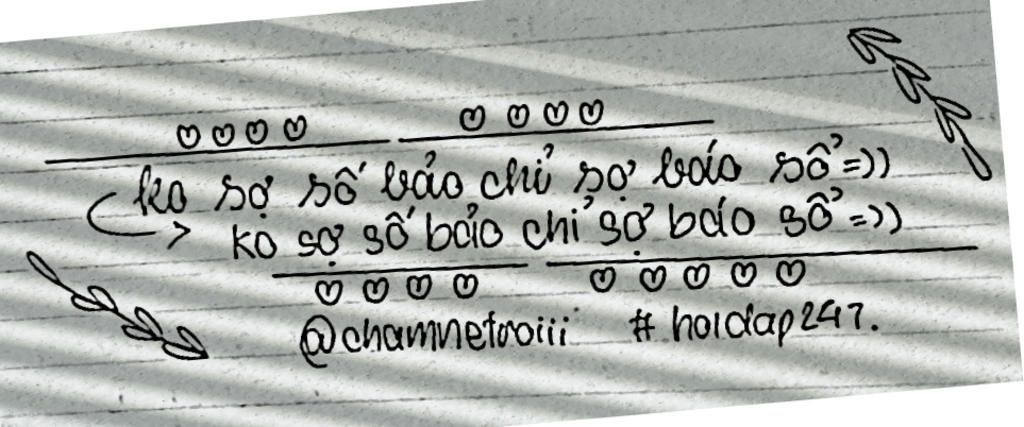 ko sợ số bảo chỉ sợ báo số =))
ko sợ số bảo chỉ sợ báo số =))
@chamnetroiii # hoidap247.